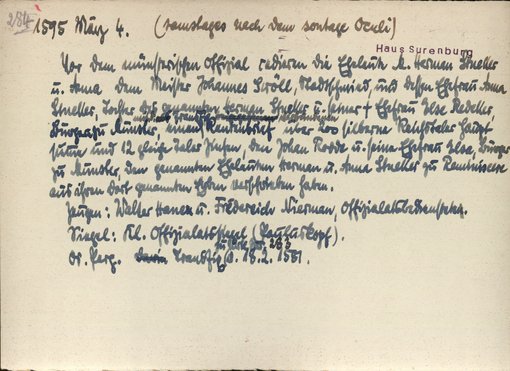 284
1595 März 4. (samstages nach dem sontage Oculi)
Haus Surenburg
Vor dem münsterischen Offizial cedieren die Eheleute Hermen
u. Anna dem Meister Johannes Ströll, Stadtschmied, und dessen Ehefrau Anna
Tochter des genannten Hermen u. seiner † Ehefrau Ilse Redeker,
Bürger zu Münster, einen Rentenbrief über 200 silberne Reichstaler Haupt-
summ und 12 gleiche Taler Zinsen, den Johan Rodde u. seine Ehefrau Ilse, Bürger
zu Münster, den genannten Eheleuten Herman u. Anna zu Reminiscere
aus ihren dort genannten Erben verschrieben haben.
Zeugen: Walter Hane u. Friderich Nierman, Offizialatsbedienstete.
Siegel: Kl. Offizialatssiegel (Pauluskopf).
Or. Perg. Transfix zu Urk. Nr. 283
v. 18.2. 1581.